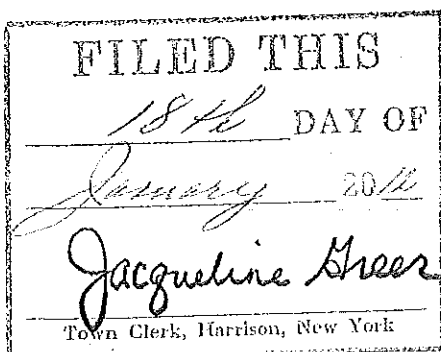 FILED THIS
18th DAY OF
January 20
Jacqueline Greer
Town Clerk, Harrison, New York